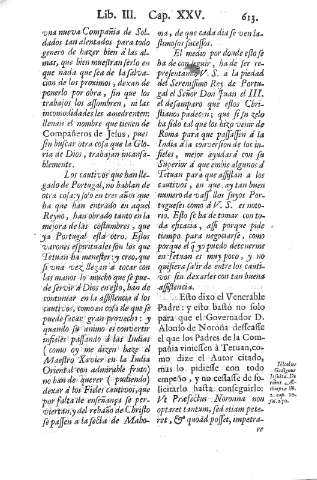 Lib. III. Cap. XXV. 613.
vna nueva Compañia de Sol-
dados tan alentados para todo
genero de hazer bien à las al-
mas, que bien muestran serlo en
que nada que sea de la salva-
cion de los proximos, dexan de
ponerlo por obra, sin que los
trabajos los assombren, ni las
incomodidades los amedrenten:
llenan el nombre que tienen de
Compañeros de Jesus, pues
sin buscar otra cosa que la Glo-
ria de Dios, trabajan incansa-
blemente.
Los cautivos que han lle-
gado de Portugal, no hablan de
otra cosa; y solo en tres años que
ha que han entrado en aquel
Reyno, han obrado tanto en la
mejora de las costumbres, que
ya Portugal està otro. Estos
varones espirituales son los que
Tetuan ha menester; y creo, que
si una vez llegan à tocar con
las manos lo mucho que se pue-
de servir à Dios en esto, han de
continuar en la assistencia à los
cautivos, como es cosa de que se
puede sacar gran provecho: y
quando su animo es convertir
infieles passando à las Indias
(como oy me dizen haze el
Maestro Xavier en la India
Oriental con admirable fruto)
no han de querer (pudiendo)
dexar à los Fieles cautivos, que
por falta de enseñança se per-
viertan, y del rebaño de Christo
se passen à la secta de Maho-
ma, de que cada dia se ven las-
timosos sucessos.
El medio por donde esto se
ha de conseguir, ha de ser re-
presentando V. S. à la piedad
del Serenissimo Rey de Portu-
gal el Señor Don Juan el III.
el desamparo que estos Chris-
tianos padecen; que si su zelo
ha sido tal que los hizo venir de
Roma para que passassen à la
India à la conversion de los in-
fieles, mejor ayudarà con su
Superior à que embie algunos à
Tetuan para que assistan à los
cautivos, en que ay tan buen
numero de vassallos suyos Por-
tugueses como à V. S. es noto-
rio. Esto se ha de tomar con to-
da eficacia, assi porque pide
tiempo para negociarse, como
porque el que yo puedo detenerme
en Tetuan es muy poco, y no
quisiera salir de entre los cauti-
vos sin dexarles con tan buena
assistencia.
Esto dixo el Venerable
Padre: y esto bastò no solo
para que el Governador D.
Alonso de Noroña desseasse
el que los Padres de la Com-
pañia viniessen à Tetuan, co-
mo dize el Autor citado,
mas lo pidiesse con todo
empeño, y no cessasse de so-
licitarlo hasta conseguirlo:
Ut Praefectus Noronna non
optaret tantum, sed etiam pete-
ret, & quoad posset, impetra-